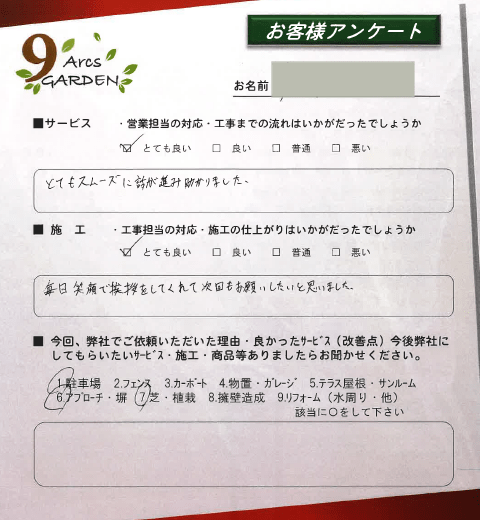 お客様アンケート
9 Arcs
GARDEN
お名前
■サービス ・営業担当の対応・工事までの流れはいかがだったでしょうか
☑ とても良い □ 良い □ 普通 □ 悪い
とてもスムーズに話が進み助かりました。
■ 施 工 ・工事担当の対応・施工の仕上がりはいかがだったでしょうか
☑ とても良い □ 良い □ 普通 □ 悪い
毎日笑顔で挨拶をしてくれて次回もお願いしたいと思いました。
■ 今回、弊社でご依頼いただいた理由・良かったサービス（改善点）今後弊社に
してもらいたいサービス・施工・商品等ありましたらお聞かせください。
1.駐車場 2.フェンス 3.カーポート 4.物置・ガレージ 5.テラス屋根・サンルーム
6.アプローチ・塀 7.芝・植栽 8.擁壁造成 9.リフォーム（水周り・他）
該当に〇をして下さい